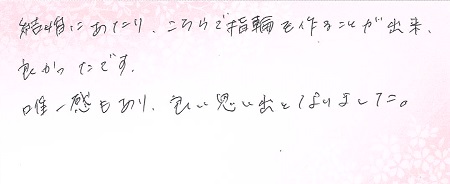 結婚にあたり、こちらで指輪を作ることが出来、
良かったです。
唯一感もあり、良い思い出となりました。